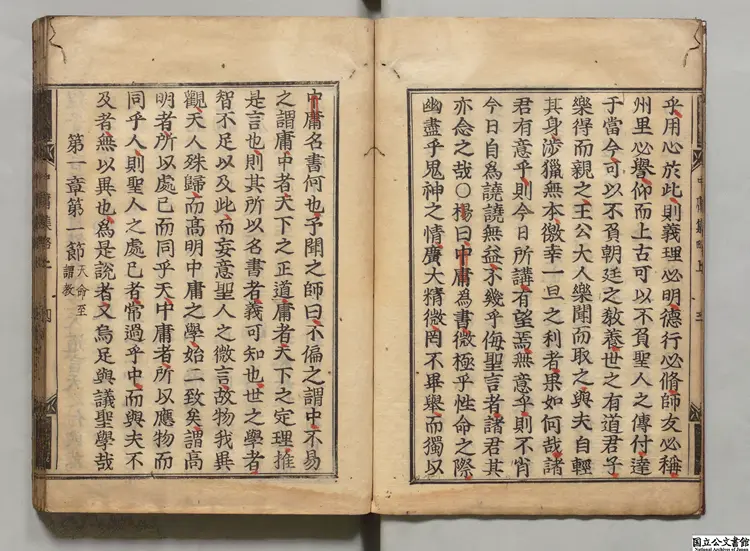 乎用心於此則義理必明德行必脩師友必稱
州里必譽仰而上古可以不負聖人之傳付達
于當今可以不負朝廷之敎養世之有道君子
樂得而親之王公大人樂聞而取之與夫自輕
其身涉獵無本徼幸一旦之利者果如何哉諸
君有意乎則今日所講有望焉無意乎則不肖
今日自爲譊譊無益不幾乎侮聖言者諸君其
亦念之哉○楊曰中庸爲書微極乎性命之際
幽盡乎鬼神之情廣大精微罔不畢舉而獨以
中庸名書何也予聞之師曰不偏之謂中不易
之謂庸中者天下之正道庸者天下之定理推
是言也則其所以名書者義可知也世之學者
智不足以及此而妄意聖人之微言故物我異
觀天人殊歸而高明中庸之學始二致矣謂高
明者所以處己而同乎天中庸者所以應物而
同乎人則聖人之處己者常過乎中而與夫不
及者無以異也為是說者又烏足與議聖學哉
第一章第一節 天命至謂教
国立公文書館
National Archives of Japan